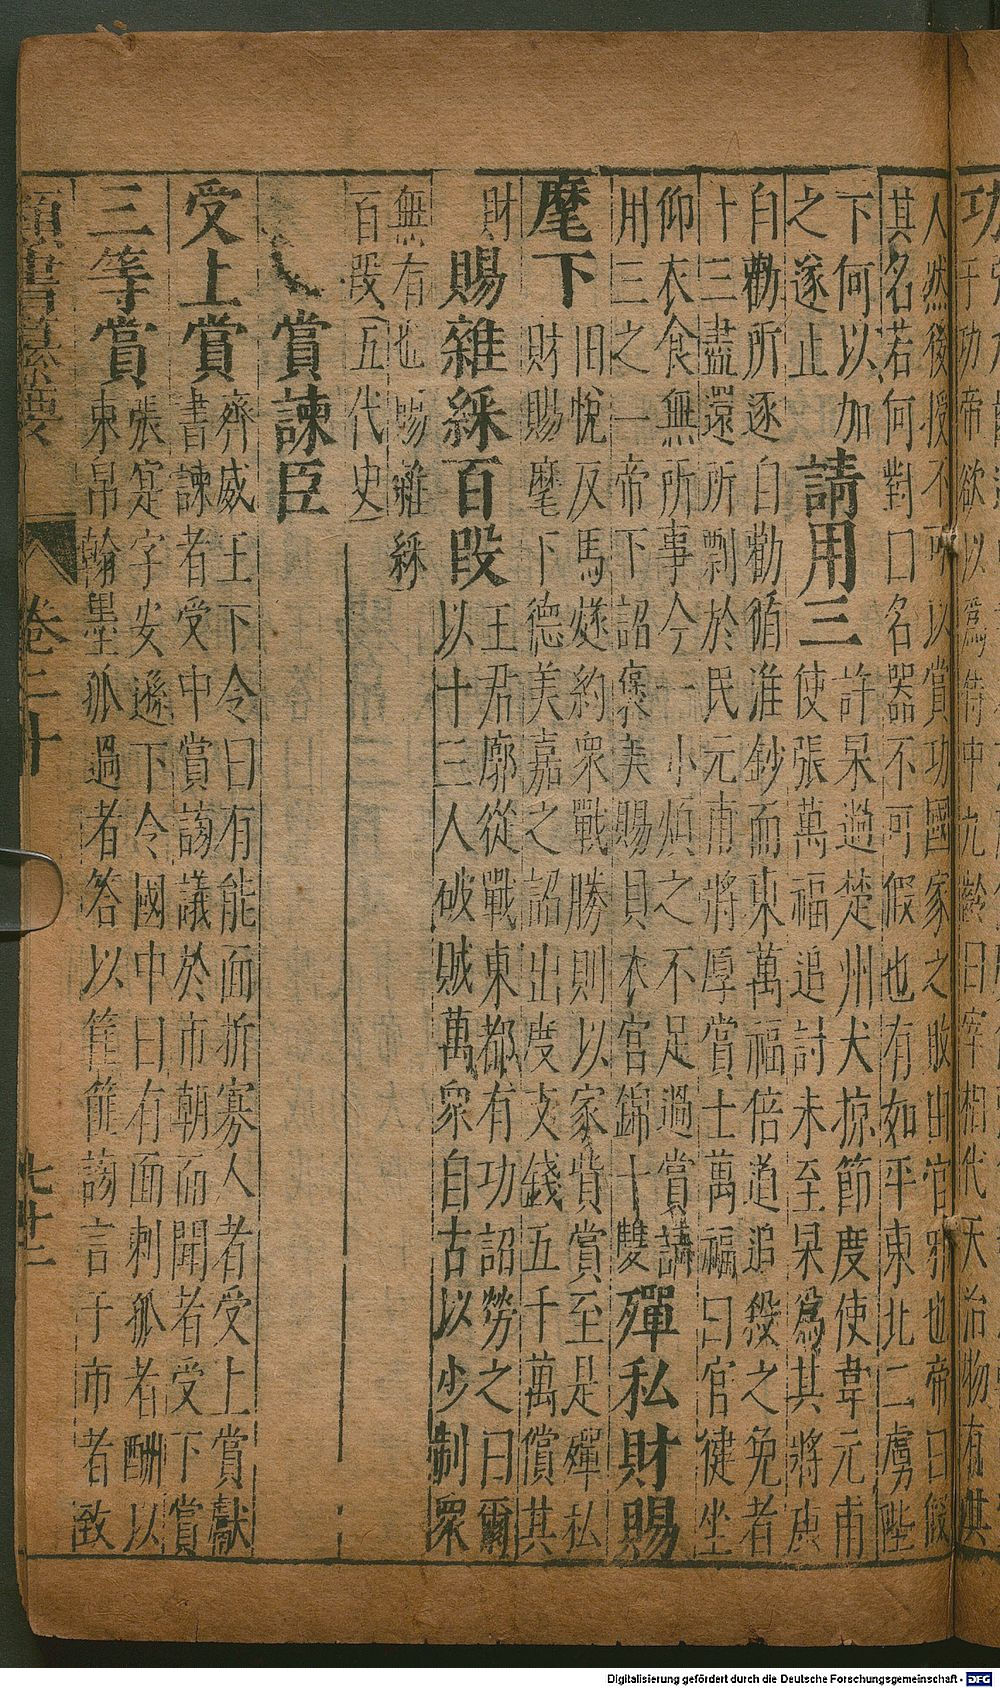 功于功帝欲以爲侍中九齡曰宰相代天治物有其
人然後授不可以賞功國家之敗由官邪也帝曰假
其名若何對曰名器不可假也有如平東北二虜陛
下何以加
之遂止
請用三
許杲過楚州大掠節度使韋元甫
使張萬福追討未至杲爲其將康
自勸所逐自勸循淮鈔而東萬福倍道追殺之免者
十三盡還所剽於民元甫將厚賞士萬福曰官健坐
仰衣食無所事今一小煩之不足過賞請
用三之一帝下詔褒美賜具衣宮錦十雙
殫私財賜
麾下
旧悅反馬燧約衆戰勝則以家貲賞至是殫私
財賜麾下德美嘉之詔出度支錢五千萬償其
財
賜雜綵百段
王君廓從戰東都有功詔勞之曰爾
以十三人破賊萬衆自古以少制衆
無有也賜雜綵
百段(五代史)
賞諫臣
受上賞
齊威王下令曰有能面折寡人者受上賞獻
書諫者受中賞謗議於市朝而聞者受下賞
三等賞
張寔字安遜下令國中曰有面刺孤者酬以
束帛翰墨孤過者答以筐篚謗言于市者致
類書纂要
卷二十
Digitalisierung gefördert durch die Deutsche Forschungsgemeinschaft - DFG